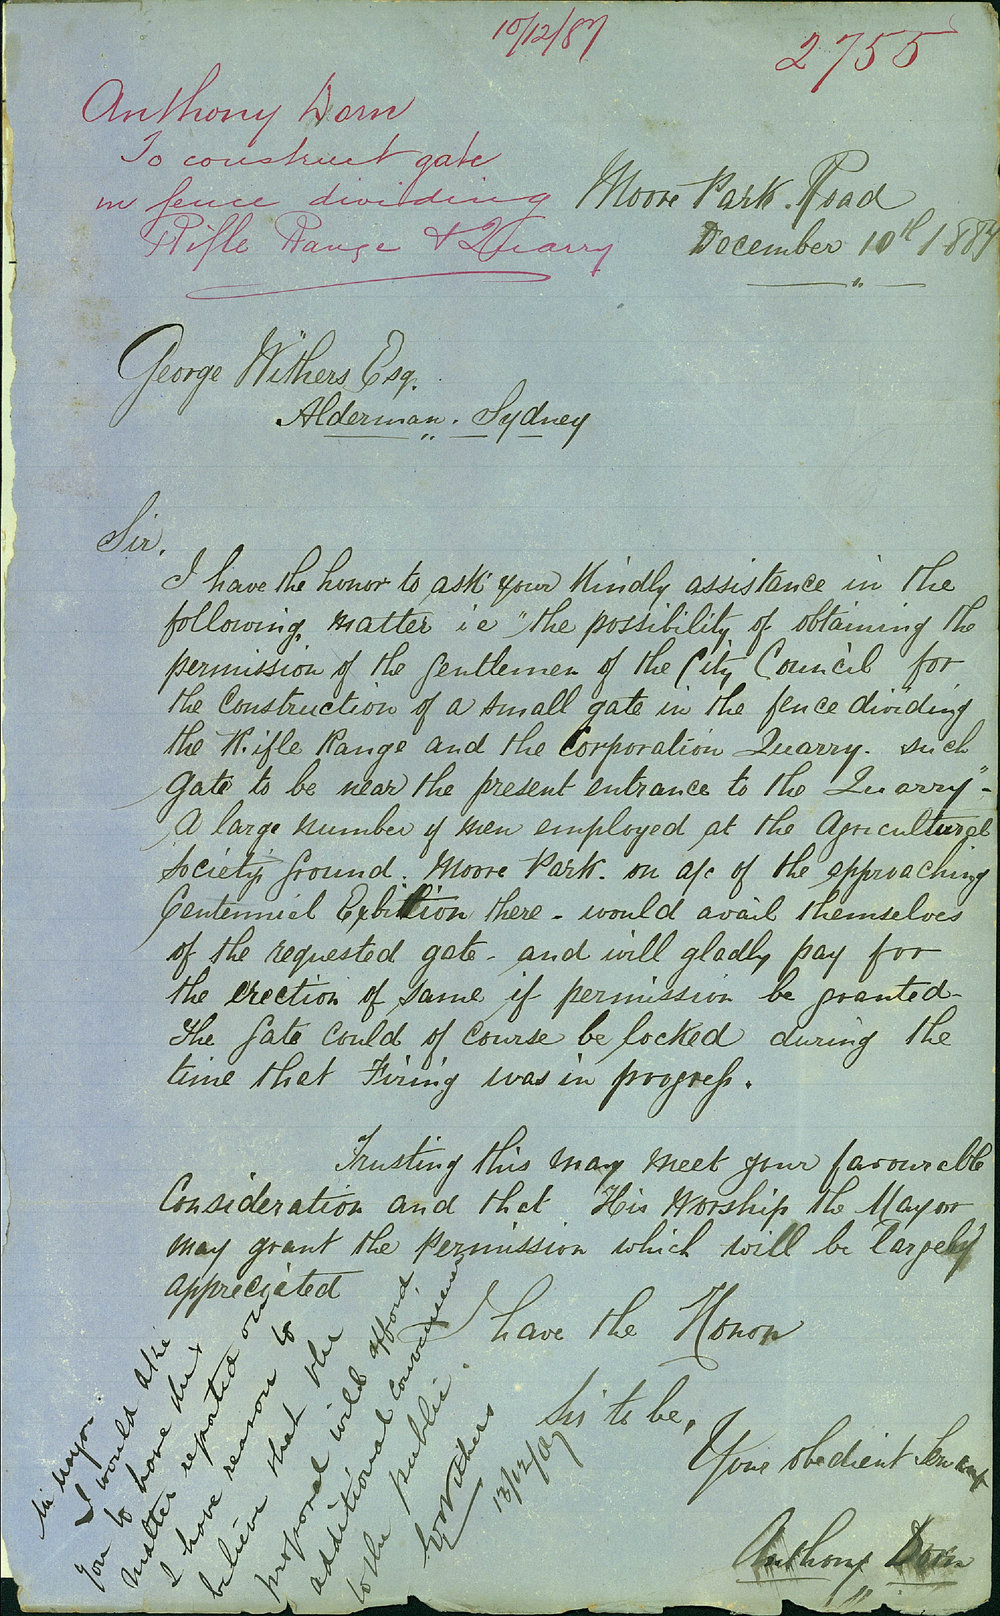 10/12/87
2755
Anthony Dorn
To construct gate
in fence dividing
Rifle Range & Quarry
Moore Park. Road
December 10th 1887
George Withers Esq.
Alderman. Sydney
Sir.
I have the honor to ask your Kindly assistance in the
following matter i e "the possibility of obtaining the
permission of the gentlemen of the City Council for
the Construction of a small gate in the fence dividing
the Rifle Range and the Corporation Quarry. such
Gate to be near the present entrance to the Quarry"-
A large number of men employed at the Agricultural
Society's Ground. Moore Park. on a/c of the approaching
Centennial Exbition there - would avail themselves
of the requested gate - and will gladly pay for
the erection of same if permission be granted-
The Gate Could of Course be locked during the
time that Firing was in progress.
Trusting this may meet your favourable
Consideration and that His Worship the Mayor
may grant the permission which will be largely
appreciated
I have the Honor
Sir to be,
Your obedient Servant
Anthony Dorn
Mr Mayor.
I would ask
you to have this
matter reported on
I have reason to
believe that the
proposal will afford
additional convenience
to the public.
G Withers
13/12/87